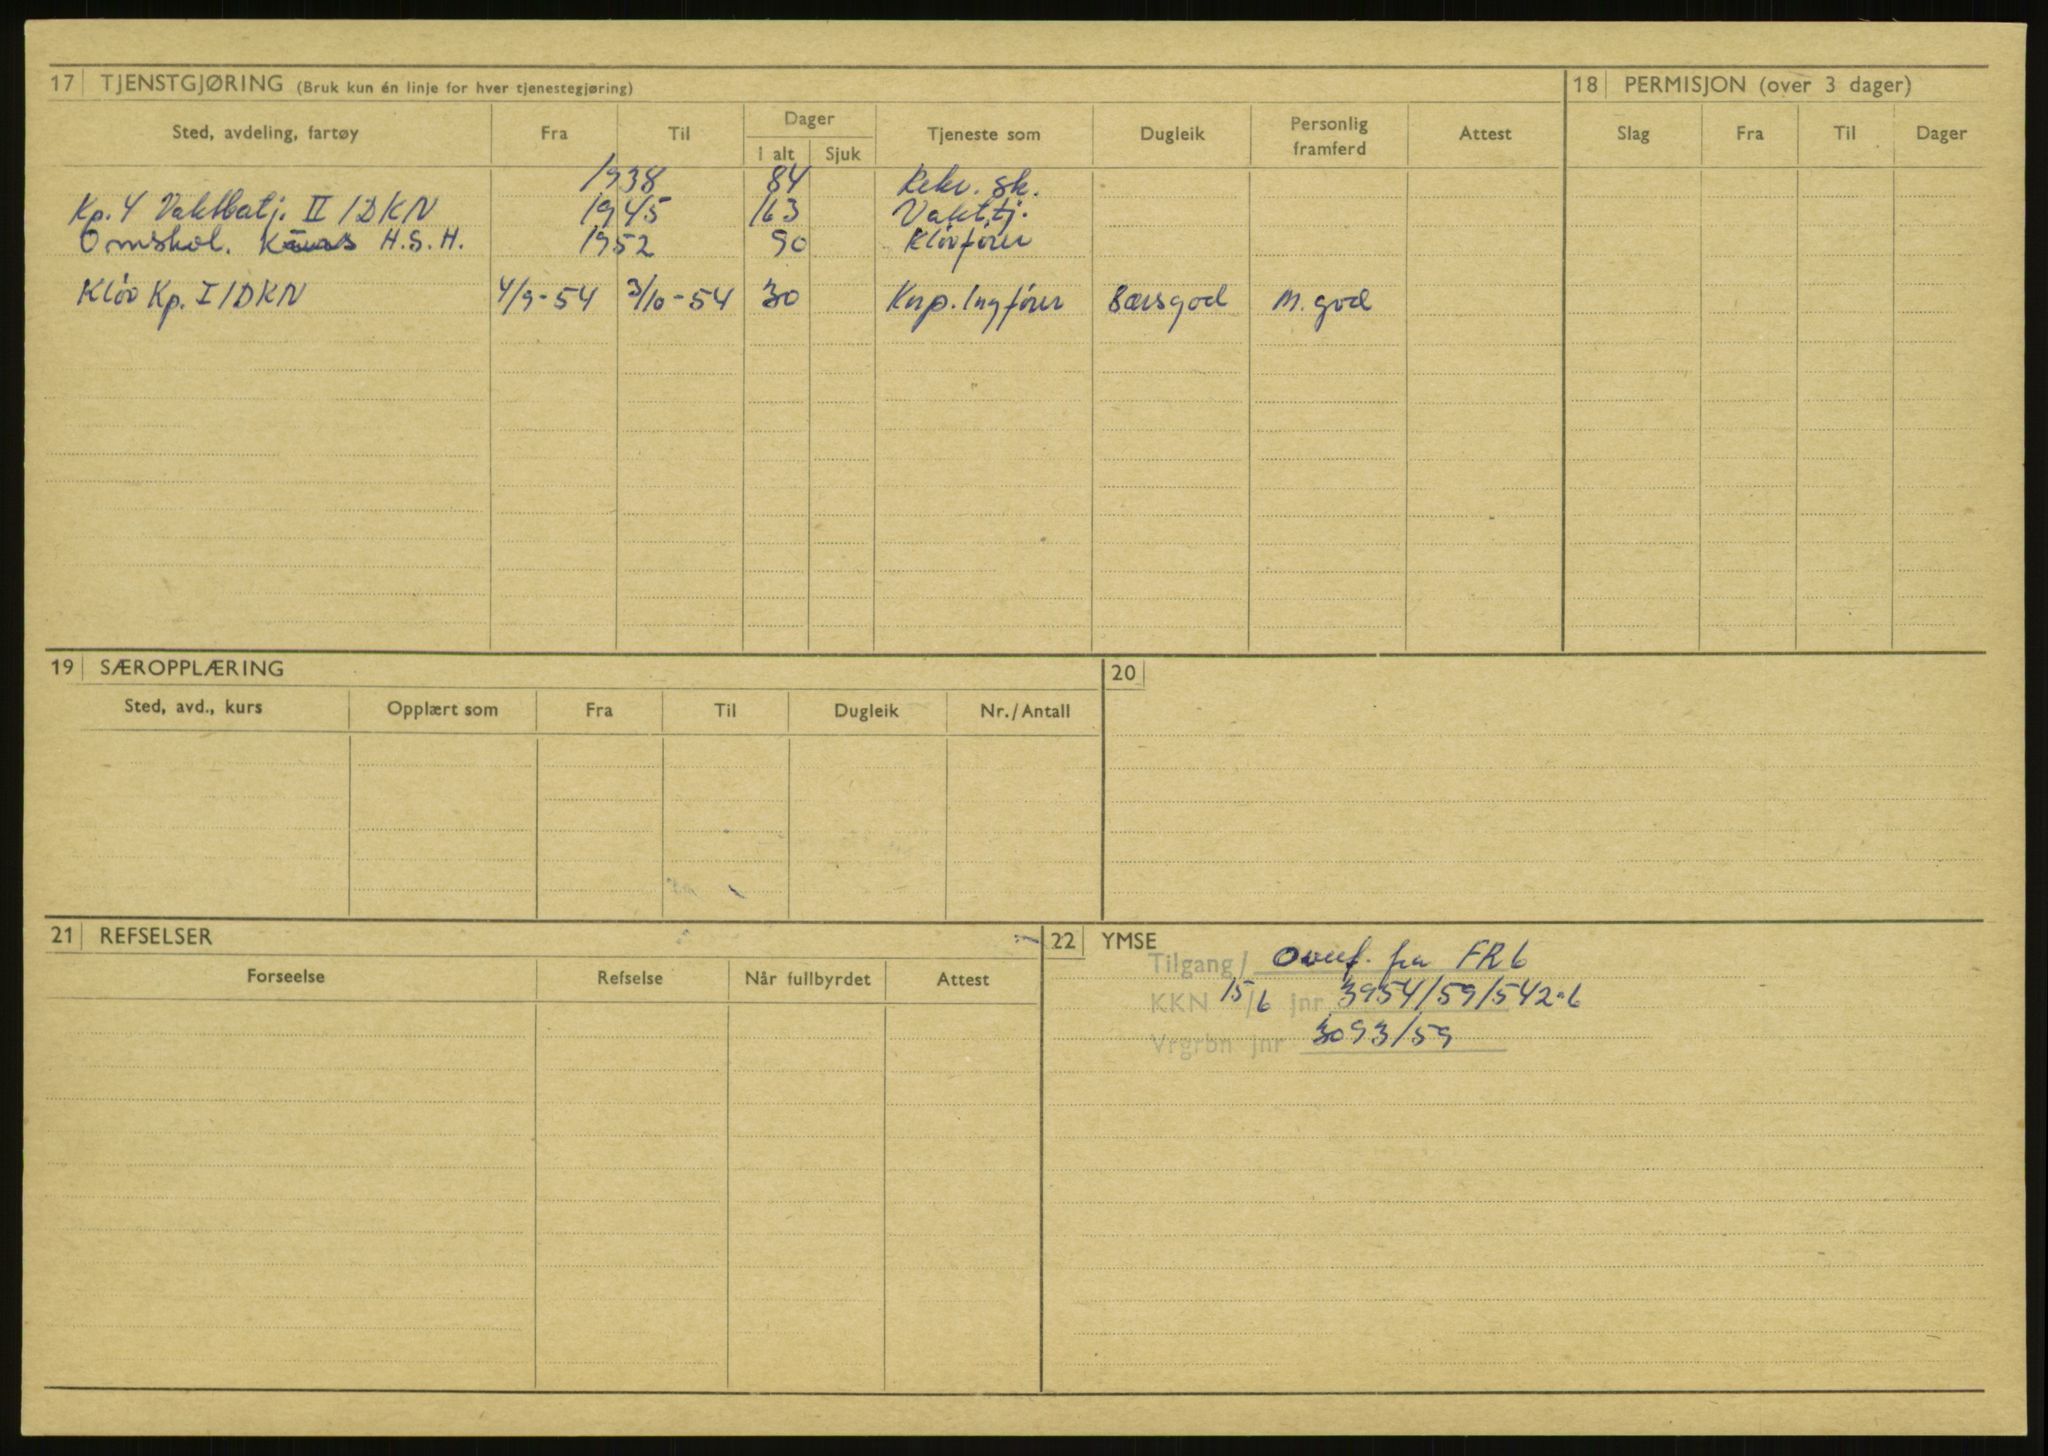 17 TJENSTGJØRING (Bruk kun én linje for hver tjenestegjøring)
18 PERMISJON (over 3 dager)
Sted, avdeling, fartøy Fra Til Dager Tjeneste som Dugleik Personlig framferd Attest Slag Fra Til Dager
I alt Sjuk
1938 84 Rekr. sk.
Kp. 4 Vaktbatj. II/DKN 1945 163 Vakttj.
Omskol. Kurs H.S.H. 1952 90 Kløvfører
Kløv Kp. I/DKN 4/9-54 3/10-54 30 Korp. Lagfører Særsgod M. god
19 SÆROPPLÆRING
20
Sted, avd., kurs Opplært som Fra Til Dugleik Nr./Antall
21 REFSELSER
22 YMSE
Forseelse Refselse Når fullbyrdet Attest
Tilgang/ Overf. fra FR6
KKN 15/6 jnr 3954/59/542.6
Vrgrbn jnr 3093/59